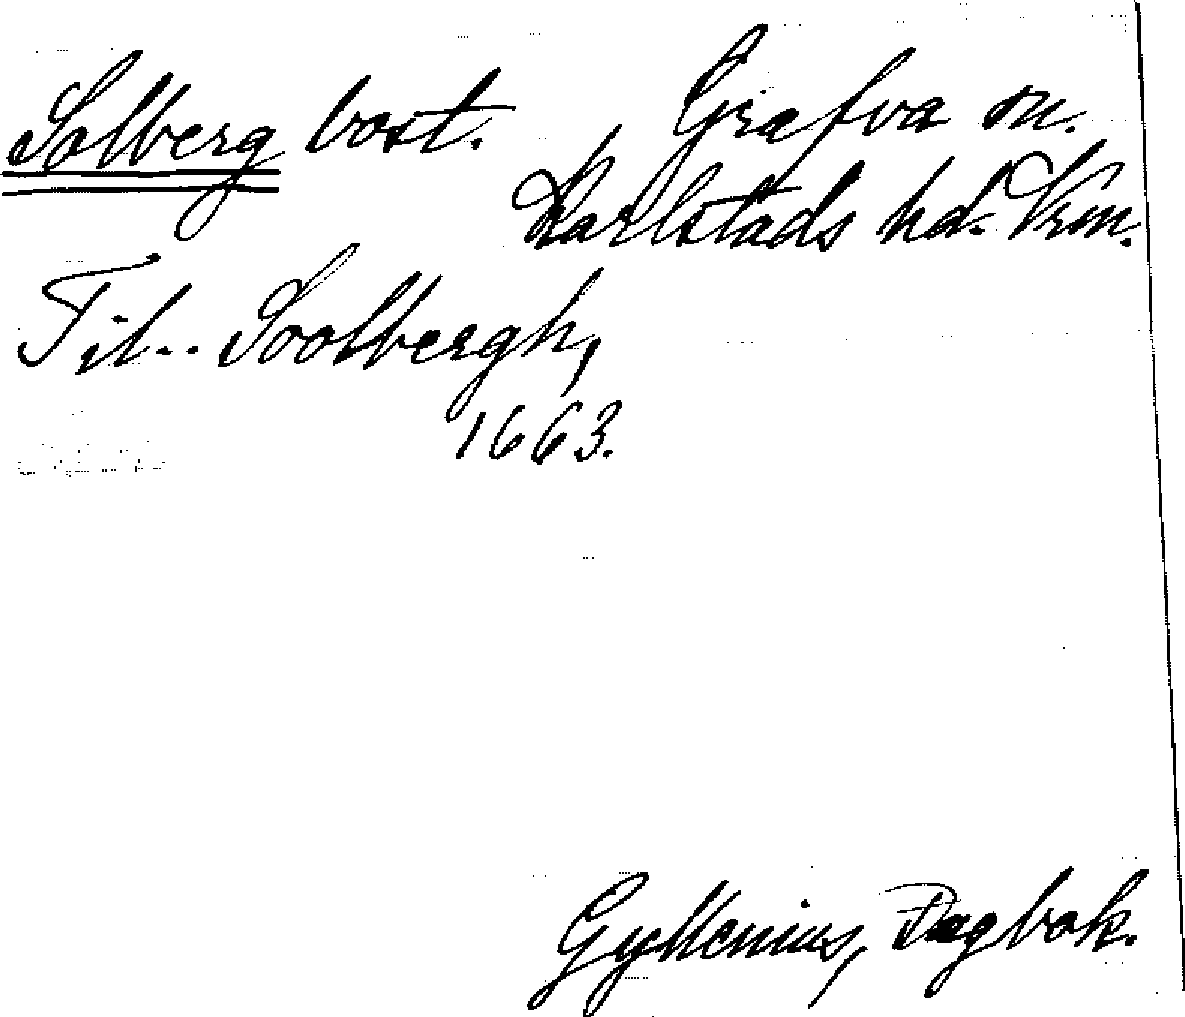 Solberg bost. Grafva sn.
Karlstads hd. Vrm.
Til.. Soolbergh,
1663.
Gyllenius, Dagbok.